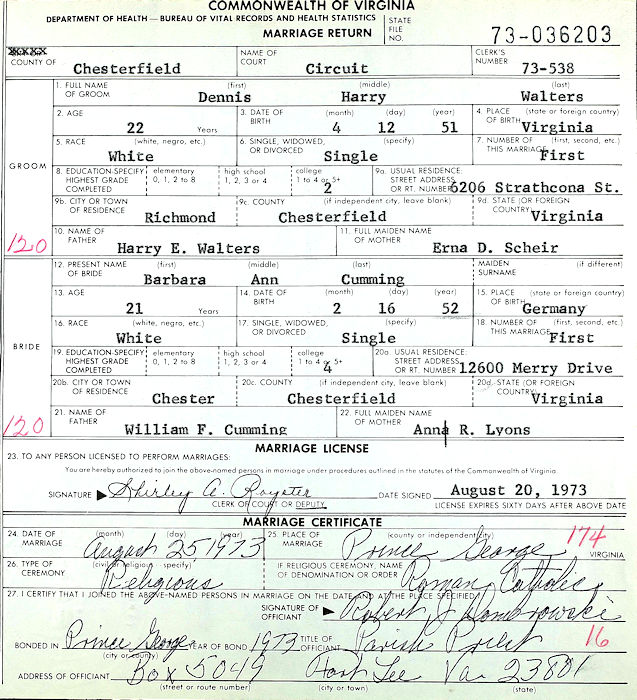 COMMONWEALTH OF VIRGINIA
DEPARTMENT OF HEALTH — BUREAU OF VITAL RECORDS AND HEALTH STATISTICS
MARRIAGE RETURN
STATE FILE NO. 73-036203
COUNTY OF Chesterfield NAME OF COURT Circuit CLERK'S NUMBER 73-538
GROOM
1. FULL NAME OF GROOM (first) Dennis (middle) Harry (last) Walters
2. AGE 22 Years 3. DATE OF BIRTH (month) 4 (day) 12 (year) 51 4. PLACE OF BIRTH (state or foreign country) Virginia
5. RACE (white, negro, etc.) White 6. SINGLE, WIDOWED, OR DIVORCED (specify) Single 7. NUMBER OF THIS MARRIAGE (first, second, etc.) First
8. EDUCATION-SPECIFY HIGHEST GRADE COMPLETED elementary 0, 1, 2 to 8 high school 1, 2, 3 or 4 college 1 to 4 or 5+ 2 9a. USUAL RESIDENCE: STREET ADDRESS OR RT. NUMBER 6206 Strathcona St.
9b. CITY OR TOWN OF RESIDENCE Richmond 9c. COUNTY (if independent city, leave blank) Chesterfield 9d. STATE (OR FOREIGN COUNTRY) Virginia
120
10. NAME OF FATHER Harry E. Walters 11. FULL MAIDEN NAME OF MOTHER Erna D. Scheir
BRIDE
12. PRESENT NAME OF BRIDE (first) Barbara (middle) Ann (last) Cumming MAIDEN SURNAME (if different)
13. AGE 21 Years 14. DATE OF BIRTH (month) 2 (day) 16 (year) 52 15. PLACE OF BIRTH (state or foreign country) Germany
16. RACE (white, negro, etc.) White 17. SINGLE, WIDOWED, OR DIVORCED (specify) Single 18. NUMBER OF THIS MARRIAGE (first, second, etc.) First
19. EDUCATION-SPECIFY HIGHEST GRADE COMPLETED elementary 0, 1, 2 to 8 high school 1, 2, 3 or 4 college 1 to 4 or 5+ 4 20a. USUAL RESIDENCE: STREET ADDRESS OR RT. NUMBER 12600 Merry Drive
20b. CITY OR TOWN OF RESIDENCE Chester 20c. COUNTY (if independent city, leave blank) Chesterfield 20d. STATE (OR FOREIGN COUNTRY) Virginia
120
21. NAME OF FATHER William F. Cumming 22. FULL MAIDEN NAME OF MOTHER Anna R. Lyons
MARRIAGE LICENSE
23. TO ANY PERSON LICENSED TO PERFORM MARRIAGES:
You are hereby authorized to join the above-named persons in marriage under procedures outlined in the statutes of the Commonwealth of Virginia.
SIGNATURE Shirley A. Royster DATE SIGNED August 20, 1973
CLERK OF COURT OR DEPUTY LICENSE EXPIRES SIXTY DAYS AFTER ABOVE DATE
MARRIAGE CERTIFICATE
24. DATE OF MARRIAGE (month) (day) (year) August 25 1973 25. PLACE OF MARRIAGE (county or independent city) Prince George 174 VIRGINIA
26. TYPE OF CEREMONY (civil or religious - specify) Religious IF RELIGIOUS CEREMONY, NAME OF DENOMINATION OR ORDER Roman Catholic
27. I CERTIFY THAT I JOINED THE ABOVE-NAMED PERSONS IN MARRIAGE ON THE DATE AND AT THE PLACE SPECIFIED
SIGNATURE OF OFFICIANT Robert J Dombrowski
BONDED IN Prince George YEAR OF BOND 1973 TITLE OF OFFICIANT Parish Priest 16
(city or county)
ADDRESS OF OFFICIANT Box 5049 Fort Lee Va. 23801
(street or route number) (city or town) (state)